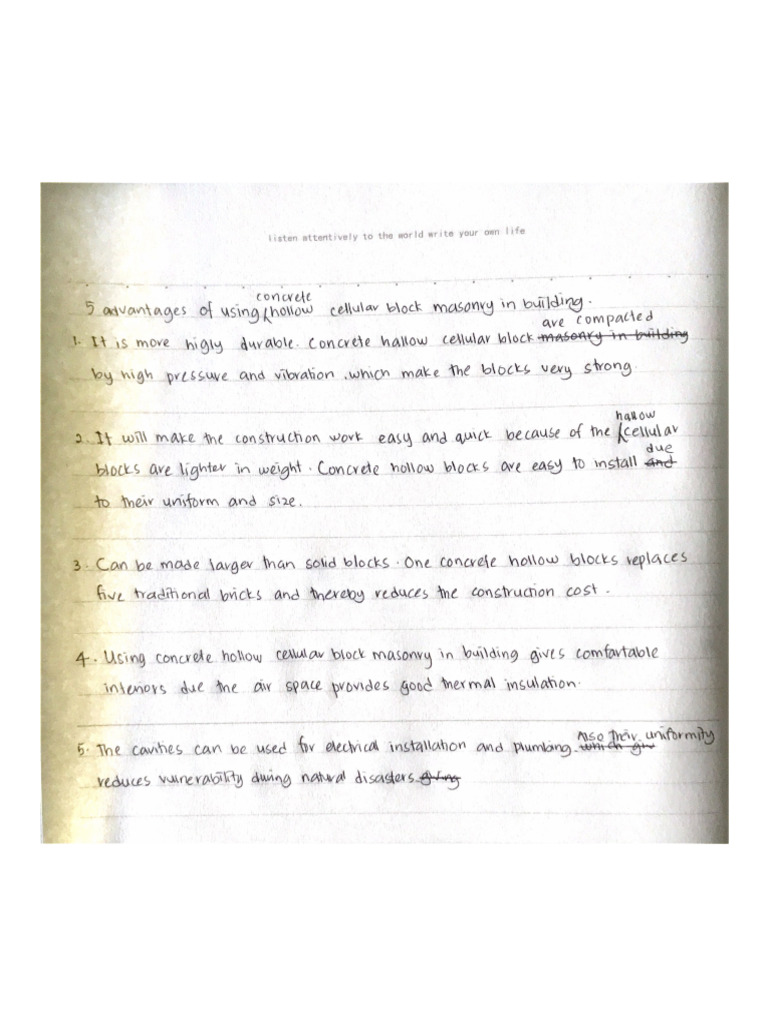 listen attentively to the world write your own life
5 advantages of using concrete hollow cellular block masonry in building.
1. It is more higly durable. Concrete hallow cellular block masonry in building are compacted
by high pressure and vibration, which make the blocks very strong.
2. It will make the construction work easy and quick because of the hallow cellular
blocks are lighter in weight. Concrete hollow blocks are easy to install and due
to their uniform and size.
3. Can be made larger than solid blocks. One concrete hollow blocks replaces
five traditional bricks and thereby reduces the construction cost.
4. Using concrete hollow cellular block masonry in building gives comfartable
interiors due the air space provides good thermal insulation.
5. The cavities can be used for electrical installation and plumbing. which giv Also their uniformity
reduces vulnerability during natural disasters. giving